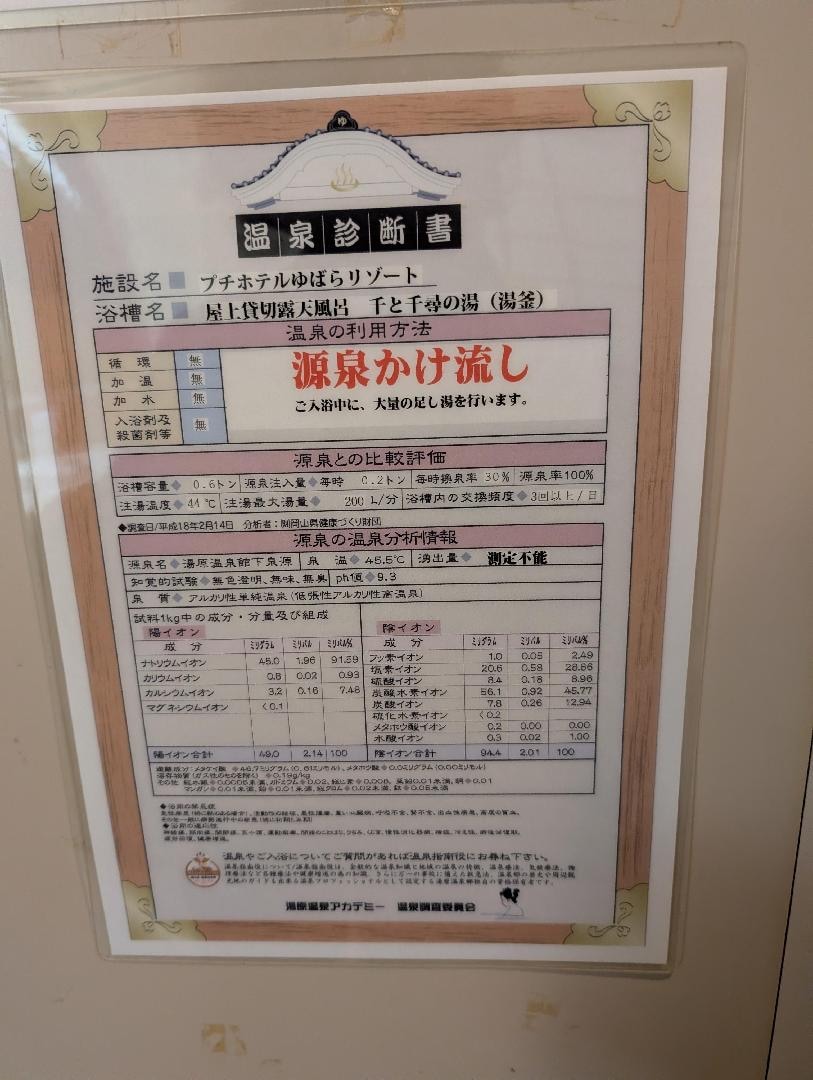 ゆ
温泉診断書
施設名 プチホテルゆばらリゾート
浴槽名 屋上貸切露天風呂 千と千尋の湯(湯釜)
温泉の利用方法
循環 無
加温 無
加水 無
入浴剤及殺菌剤等 無
源泉かけ流し
ご入浴中に、大量の足し湯を行います。
源泉との比較評価
浴槽容量◆ 0.6トン 源泉注入量◆毎時 0.2トン 毎時換泉率 30% 源泉率100%
注湯温度◆44℃ 注湯最大湯量◆ 200 L/分 浴槽内の交換頻度◆3回以上/日
◆調査日/平成18年2月14日 分析者:㈶岡山県健康づくり財団
源泉の温泉分析情報
源泉名◆湯原温泉館下泉源 泉温◆45.5℃ 湧出量◆ 測定不能
知覚的試験◆無色澄明、無味、無臭 ph値◆9.3
泉質◆アルカリ性単純温泉(低張性アルカリ性高温泉)
試料1kg中の成分・分量及び組成
陽イオン
成分 ミリグラム ミリバル ミリバル%
ナトリウムイオン 45.0 1.96 91.59
カリウムイオン 0.8 0.02 0.93
カルシウムイオン 3.2 0.16 7.48
マグネシウムイオン <0.1
陽イオン合計 49.0 2.14 100
陰イオン
成分 ミリグラム ミリバル ミリバル%
フッ素イオン 1.0 0.05 2.49
塩素イオン 20.6 0.58 28.86
硫酸イオン 8.4 0.18 8.96
炭酸水素イオン 56.1 0.92 45.77
炭酸イオン 7.8 0.26 12.94
硫化水素イオン <0.2
メタホウ酸イオン 0.2 0.00 0.00
水酸イオン 0.3 0.02 1.00
陰イオン合計 94.4 2.01 100
溶存物質(ガス性のものを除く) ◆0.19g/kg
温泉やご入浴についてご質問があれば温泉指南役にお尋ね下さい。
湯原温泉アカデミー 温泉調査委員会